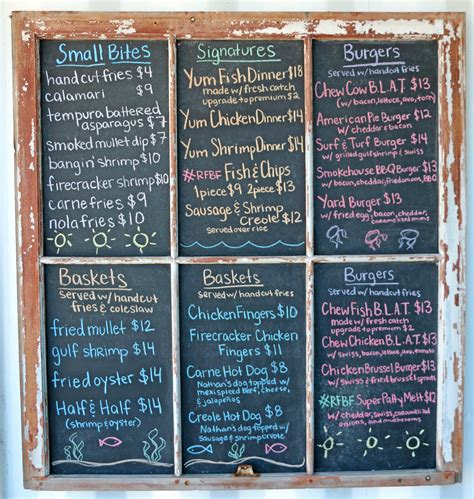 Small Bites
handcut fries $4
calamari $9
tempura battered
asparagus $7
smoked mullet dip $7
bangin' shrimp $10
firecracker shrimp $10
carne fries $9
nola fries $10
Signatures
Yum Fish Dinner $18
made w/ fresh catch
upgrade to premium $2
Yum Chicken Dinner $14
Yum Shrimp Dinner $14
#RFBF Fish & Chips
1 piece $9 2 piece $13
Sausage & Shrimp
Creole $14
served over rice
Burgers
served w/ handcut fries
Chew Cow B.L.A.T. $13
w/ bacon, lettuce, avo, tom
American Pie Burger $12
w/ cheddar & bacon
Surf & Turf Burger $13
w/ grilled gulf shrimp & swiss
Smokehouse BBQ Burger $13
w/ bacon, cheddar, fried onion, BBQ
Yard Burger $13
w/ fried egg, bacon, cheddar,
caramelized onions,
mushrooms
Baskets
served w/ handcut
fries & coleslaw
fried mullet $12
gulf shrimp $14
fried oyster $14
Half & Half $14
(shrimp & oyster)
Baskets
served w/ handcut fries
Chicken Fingers $10
Firecracker Chicken
Fingers $11
Carne Hot Dog $8
Nathan's dog topped w/
mexi spiced beef, cheese,
& jalapeños
Creole Hot Dog $8
Nathan's dog topped w/
sausage & shrimp creole
Burgers
served w/ handcut fries
Chew Fish B.L.A.T. $13
made w/ fresh catch
upgrade to premium $2
Chew Chicken B.L.A.T. $12
w/ swiss, bacon, lettuce, avo, tom
Chicken Brussel Burger $13
w/ swiss, bacon, cheddar
#RFBF Super Patty Melt $12
w/ cheddar, swiss, caramelized
onions, and
mushrooms